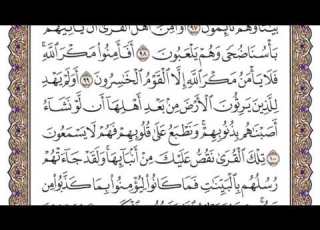 بَيَٰتًا وَهُمْ نَآئِمُونَ ٩٧ أَوَأَمِنَ أَهْلُ ٱلْقُرَىٰٓ أَن يَأْتِيَهُم
بَأْسُنَا ضُحًى وَهُمْ يَلْعَبُونَ ٩٨ أَفَأَمِنُوا۟ مَكْرَ ٱللَّهِ ۚ
فَلَا يَأْمَنُ مَكْرَ ٱللَّهِ إِلَّا ٱلْقَوْمُ ٱلْخَٰسِرُونَ ٩٩ أَوَلَمْ يَهْدِ
لِلَّذِينَ يَرِثُونَ ٱلْأَرْضَ مِنۢ بَعْدِ أَهْلِهَآ أَن لَّوْ نَشَآءُ
أَصَبْنَٰهُم بِذُنُوبِهِمْ ۚ وَنَطْبَعُ عَلَىٰ قُلُوبِهِمْ فَهُمْ لَا يَسْمَعُونَ
١٠٠ تِلْكَ ٱلْقُرَىٰ نَقُصُّ عَلَيْكَ مِنْ أَنۢبَآئِهَا ۚ وَلَقَدْ جَآءَتْهُمْ
رُسُلُهُم بِٱلْبَيِّنَٰتِ فَمَا كَانُوا۟ لِيُؤْمِنُوا۟ بِمَا كَذَّبُوا۟ مِن